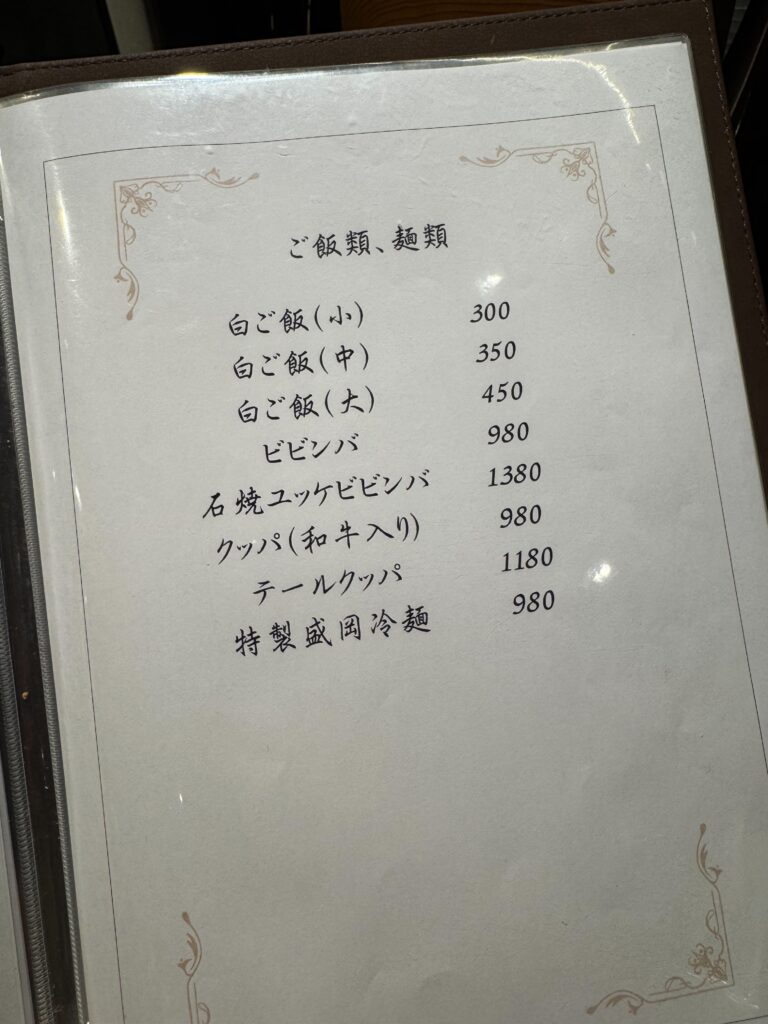 ご飯類、麺類
白ご飯(小) 300
白ご飯(中) 350
白ご飯(大) 450
ビビンバ 980
石焼ユッケビビンバ 1380
クッパ(和牛入り) 980
テールクッパ 1180
特製盛岡冷麺 980